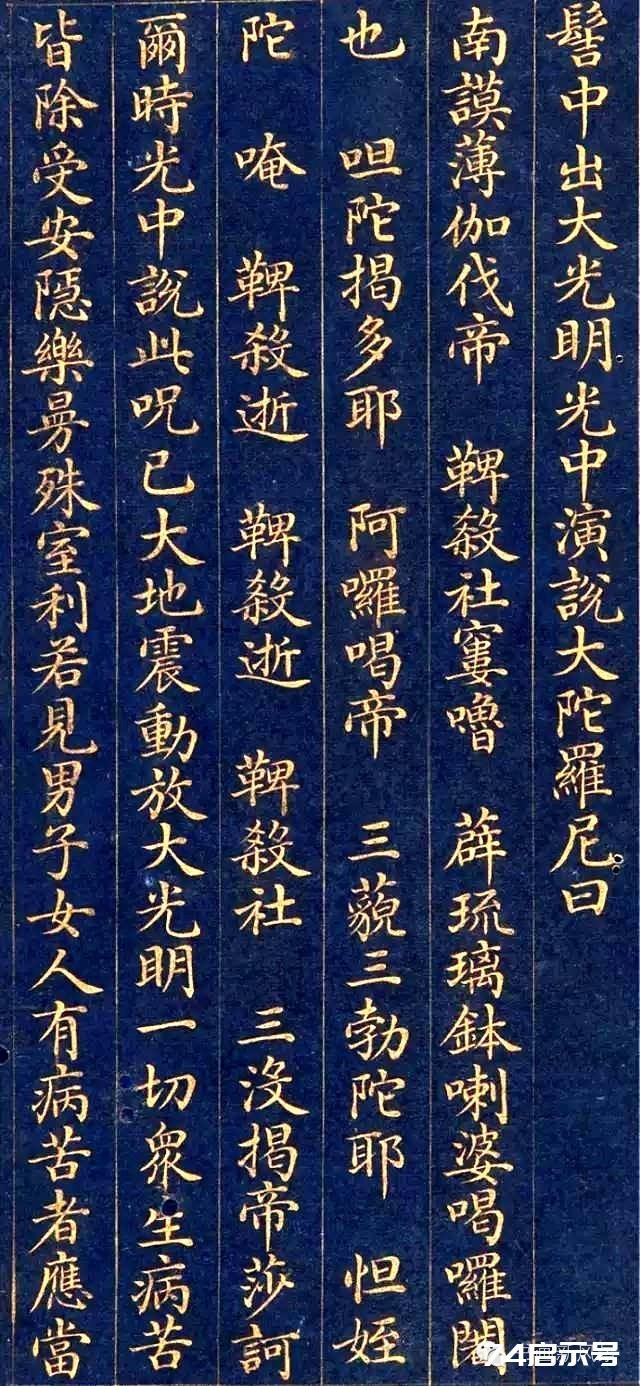 髻中出大光明光中演說大陀羅尼曰
南謨薄伽伐帝 鞞殺社窶嚕 薜琉璃鉢喇婆喝囉闍
也 呾陀揭多耶 阿囉喝帝 三藐三勃陀耶 怛姪
陀 唵 鞞殺逝 鞞殺逝 鞞殺社 三沒揭帝莎訶
爾時光中說此呪已大地震動放大光明一切眾生病苦
皆除受安隱樂曼殊室利若見男子女人有病苦者應當
74启示号